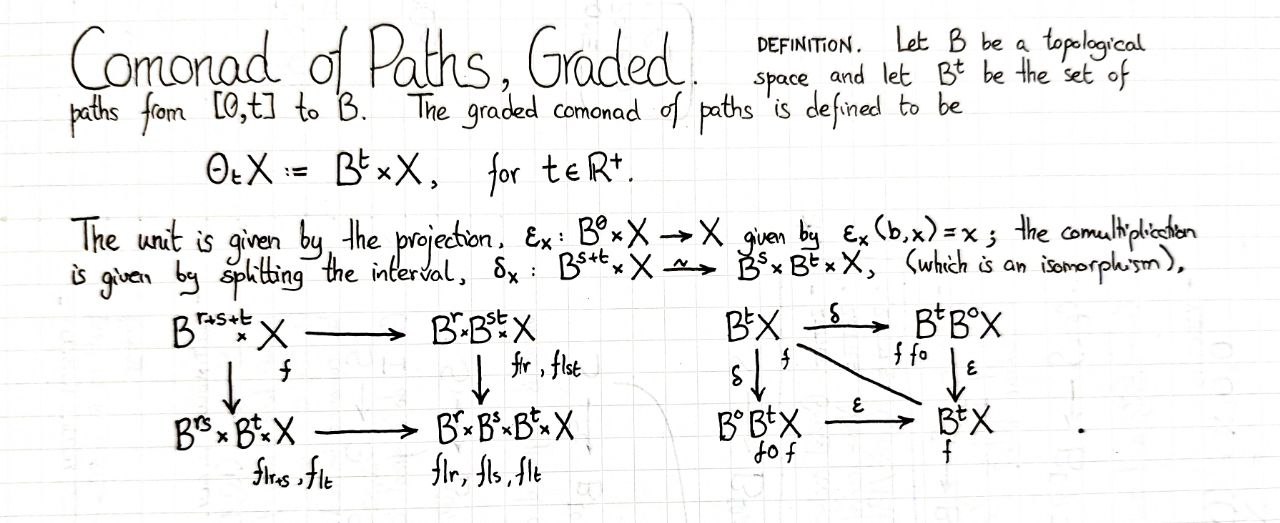 Comonad of Paths, Graded.
DEFINITION. Let B be a topological
space and let Bᵗ be the set of
paths from [0,t] to B. The graded comonad of paths is defined to be
ΘₜX := Bᵗ × X, for t ∈ R⁺.
The unit is given by the projection, εₓ : B⁰ × X → X given by εₓ(b,x) = x ; the comultiplication
is given by splitting the interval, δₓ : Bˢ⁺ᵗ × X ~→ Bˢ × Bᵗ × X, (which is an isomorphism),
Bʳ⁺ˢ⁺ᵗ × X → Bʳ × Bˢᵗ × X
f
f|r , f|st
Bʳˢ × Bᵗ × X → Bʳ × Bˢ × Bᵗ × X
f|r+s , f|t
f|r, f|s, f|t
BᵗX δ → BᵗB⁰X
f
f f0
δ ↓
↓ ε
B⁰BᵗX ε → BᵗX
f0 f
f
.